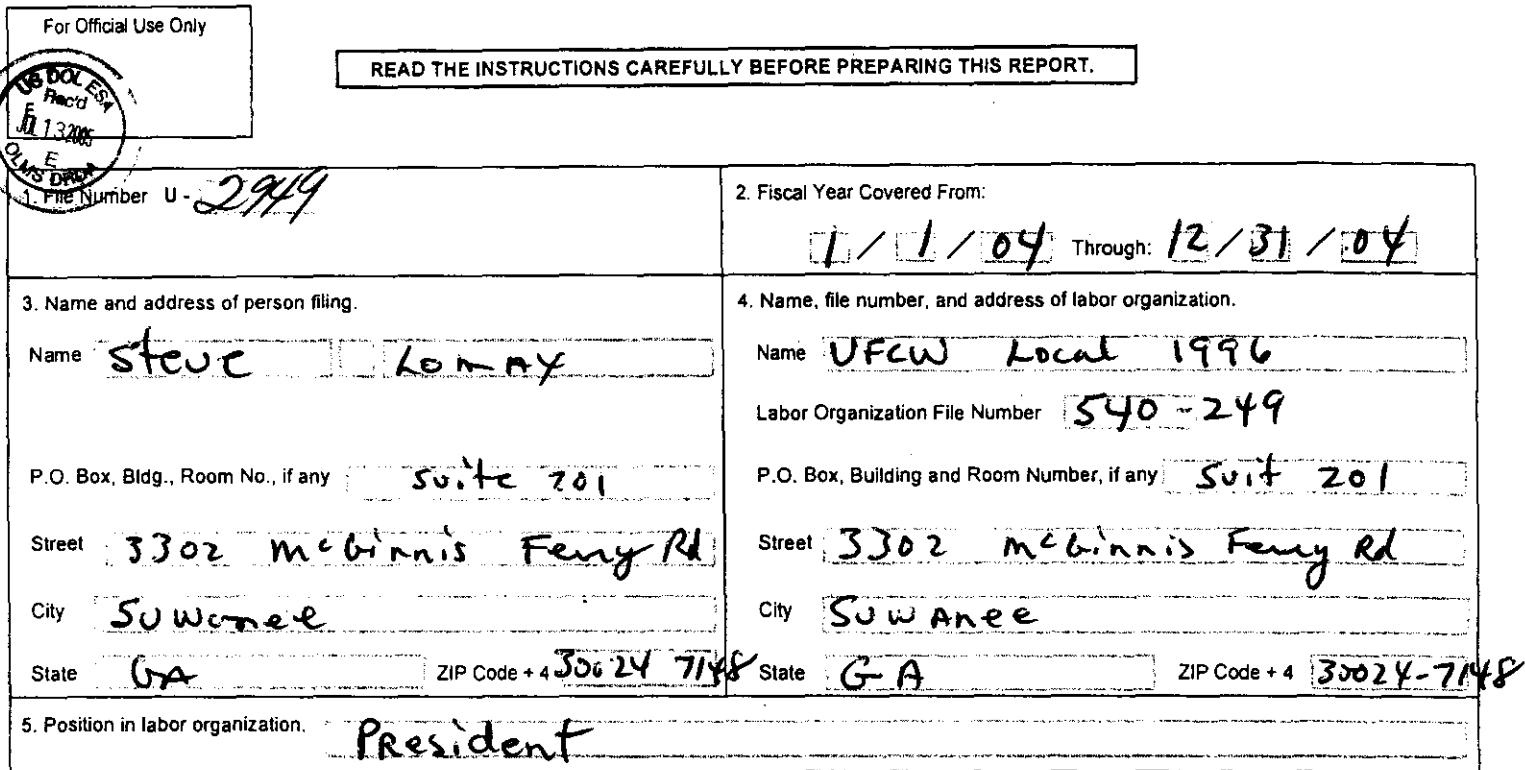 For Official Use Only
US DOL ESA
Rec'd
JUL 13 2005
E
OLMS DRDA
READ THE INSTRUCTIONS CAREFULLY BEFORE PREPARING THIS REPORT.
1. File Number U - 2949
2. Fiscal Year Covered From:
1 / 1 / 04 Through: 12 / 31 / 04
3. Name and address of person filing.
Name Steve Lomax
P.O. Box, Bldg., Room No., if any Suite 201
Street 3302 McGinnis Ferry Rd
City Suwanee
State GA ZIP Code + 4 30024 7148
4. Name, file number, and address of labor organization.
Name UFCW Local 1996
Labor Organization File Number 540-249
P.O. Box, Building and Room Number, if any Suit 201
Street 3302 McGinnis Ferry Rd
City SUWAnee
State GA ZIP Code + 4 30024-7148
5. Position in labor organization. President